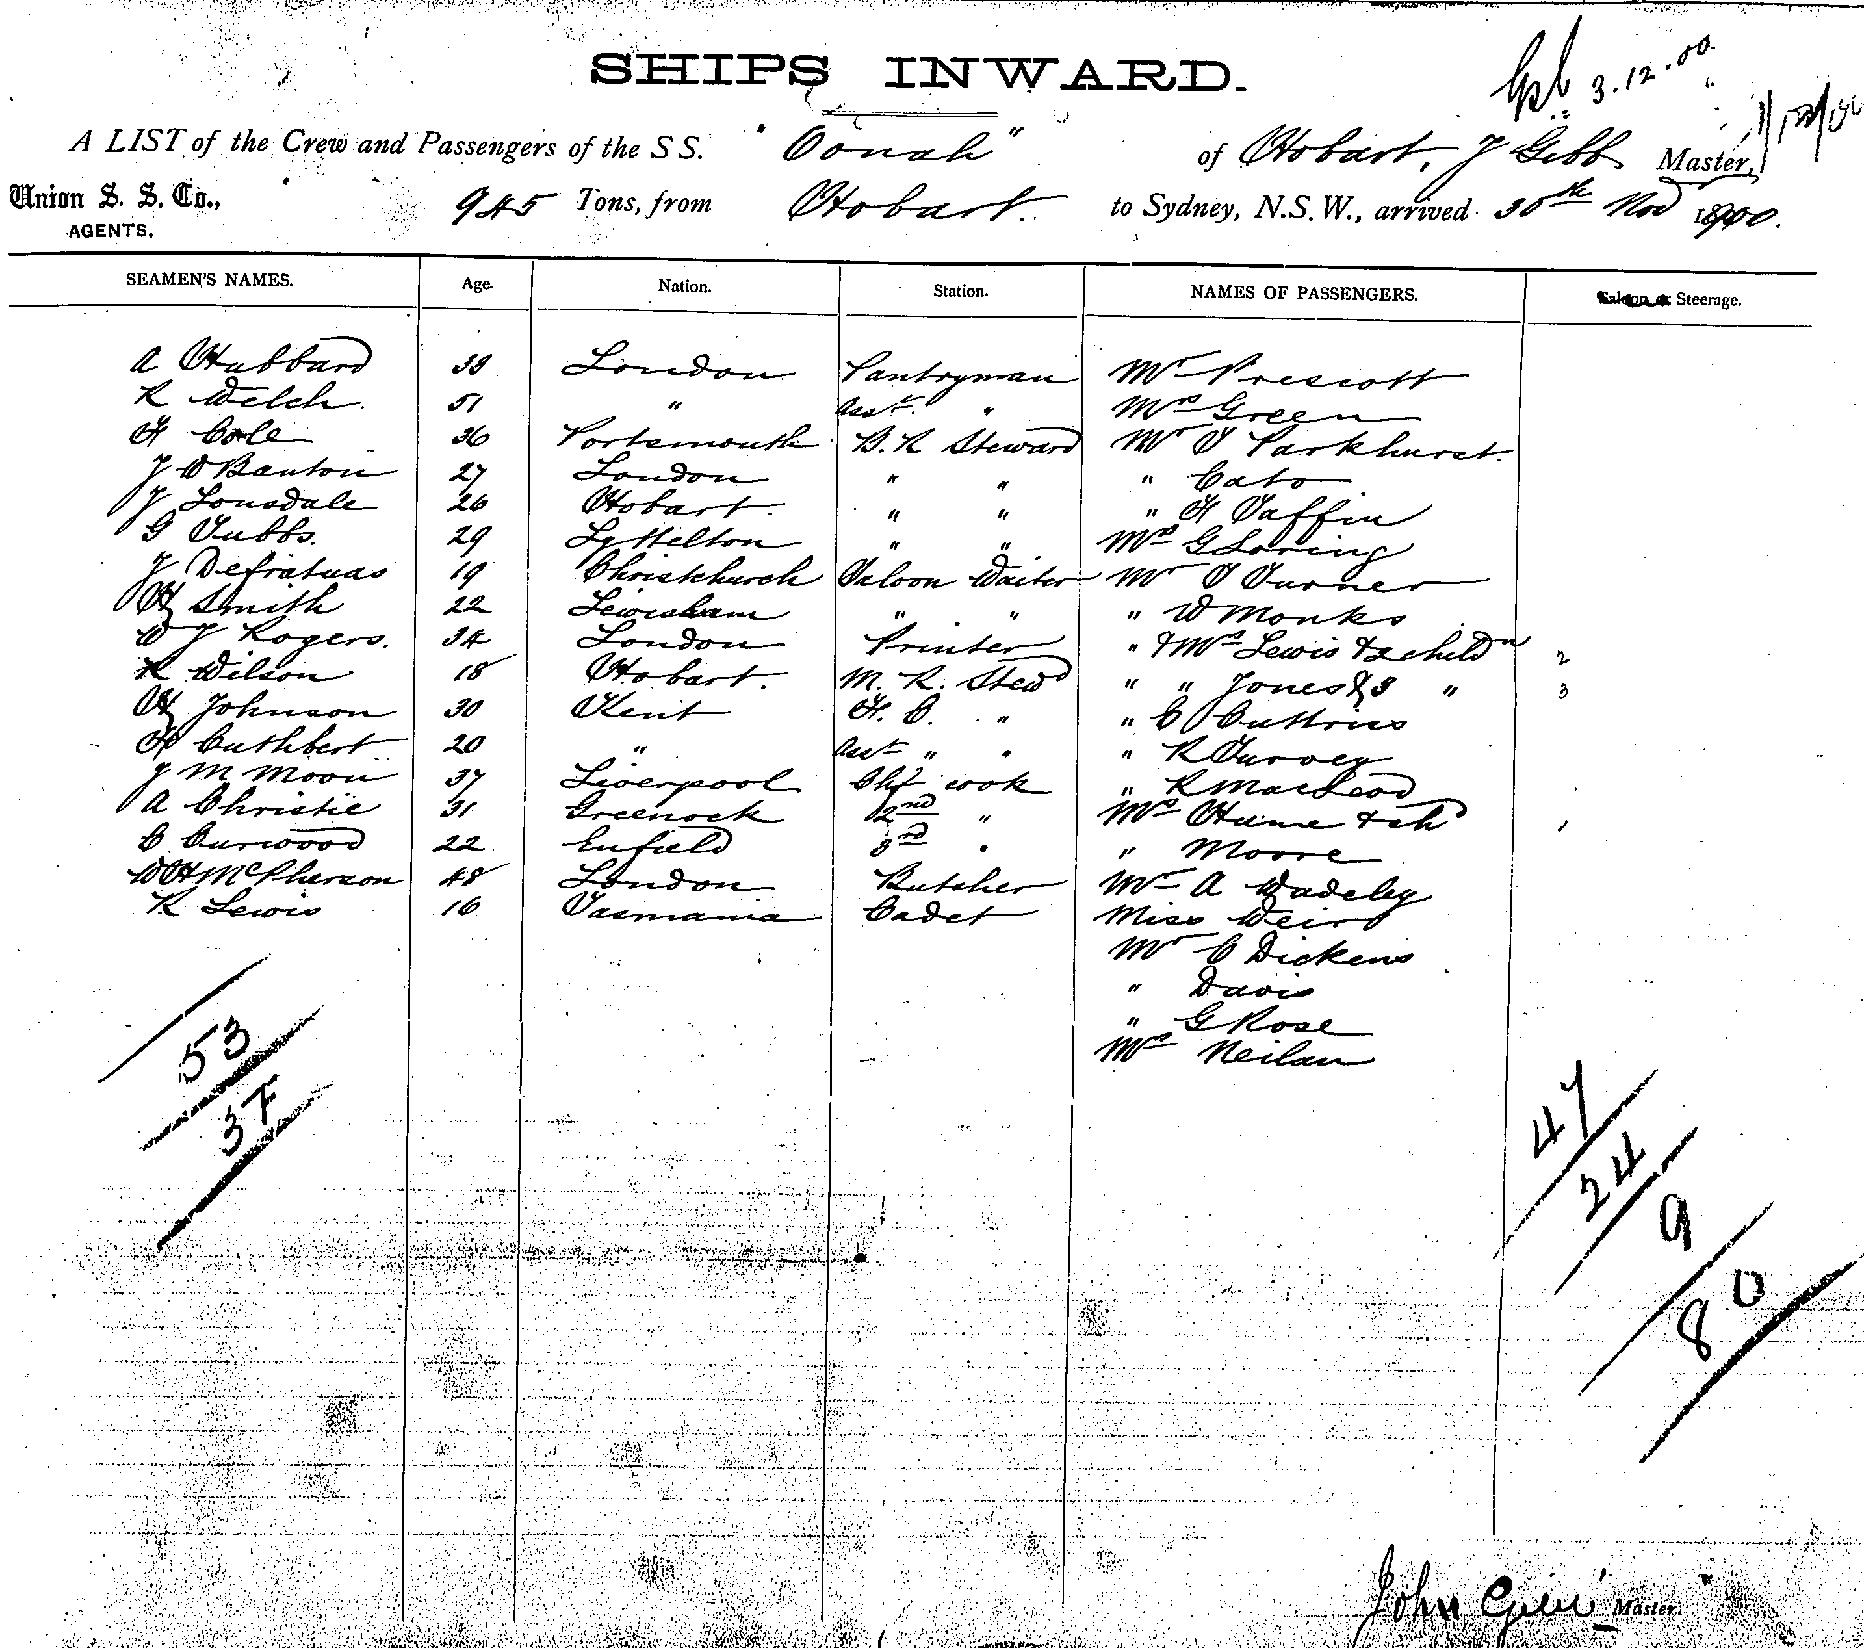 SHIPS INWARD.
3.12.00
A LIST of the Crew and Passengers of the S S. "Oonah" of Hobart, J Gibb Master,
Union S. S. Co., 945 Tons, from Hobart. to Sydney, N.S.W., arrived 30th Nov 1900.
AGENTS.
SEAMEN'S NAMES. Age. Nation. Station. NAMES OF PASSENGERS. Saloon or Steerage.
A Hubbard 39 London Pantryman Mr Prescott
R Welch. 51 " Asst. " Mrs Green
H Cole 36 Portsmouth B.R Steward Mr T Parkhurst.
J W Banton 27 London " " " Cato
J Lonsdale 26 Hobart. " " " H Taffin
G Tubbs. 29 Lyttelton " " Mrs G Loring
J Defratuas 19 Christchurch Saloon Waiter Mr T Turner
H Smith 22 Lewisham " " " W Monks
W J Rogers. 34 London Printer " & Mrs Lewis & 2 childn 2
R Wilson 18 Hobart. M. R. Stewd " " Jones & 3 " 3
H Johnson 30 Kent F. C. " " C Cuttriss
H Cuthbert 20 " Asst " " " R Turvey
J M Moon 37 Liverpool Chf cook " R MacLeod
A Christie 31 Greenock 2nd " Mrs Hume & chd 1
C Curwood 22 Enfield 3rd " " Moore
W H McPherson 48 London Butcher Mr A Wadeley
R Lewis 16 Tasmania Cadet Miss Weird
Mr C Dickens
" Davis
" G Rose
Mrs Neilan
53
37
47
24
9
80
John Gibb Master.